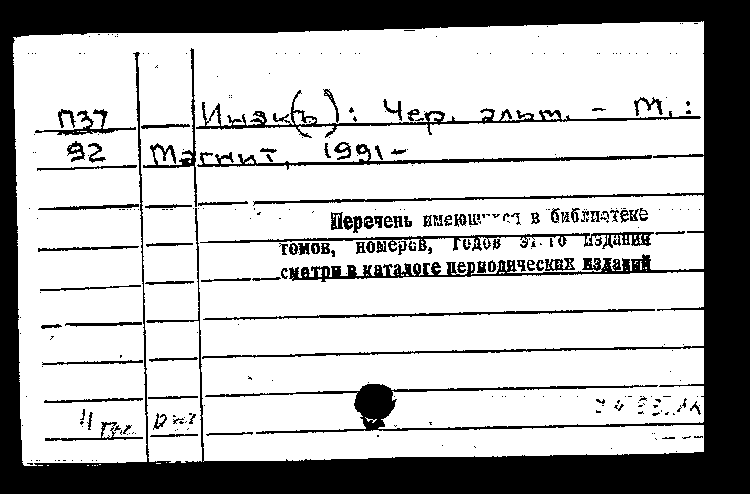 П37 Инак(ъ): Чер. альт. - М.:
92 Магнит, 1991-
Перечень имеющихся в библиотеке
томов, номеров, годов этого издания
смотри в каталоге периодических изданий